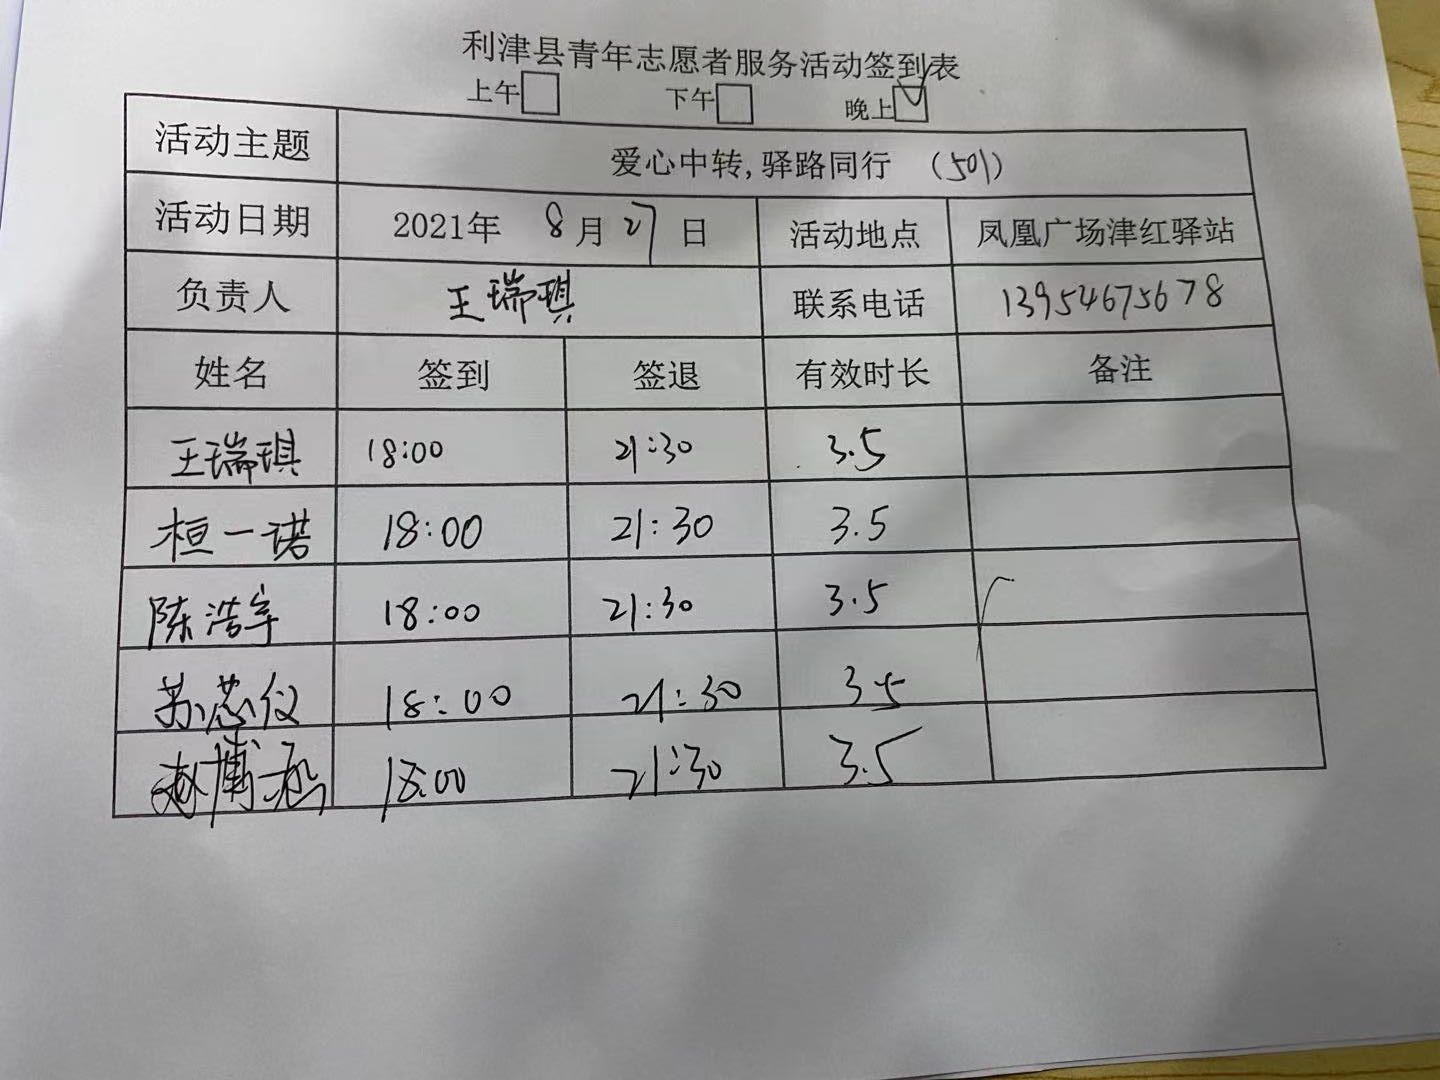 利津县青年志愿者服务活动签到表
上午 下午 晚上
活动主题 爱心中转,驿路同行 (501)
活动日期 2021年 8月27日 活动地点 凤凰广场津红驿站
负责人 王瑞琪 联系电话 13954675678
姓名 签到 签退 有效时长 备注
王瑞琪 18:00 21:30 3.5
桓一诺 18:00 21:30 3.5
陈浩宇 18:00 21:30 3.5
苏芯仪 18:00 21:30 3.5
博 18:00 21:30 3.5